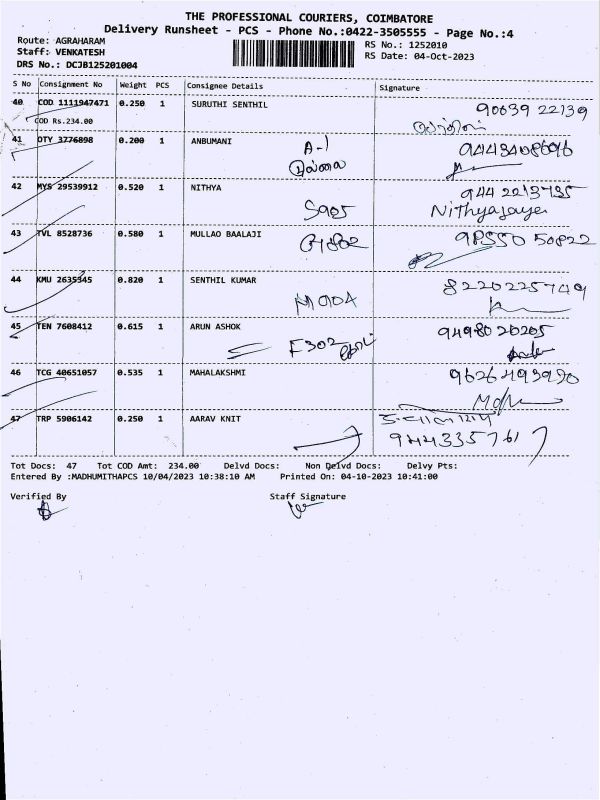 THE PROFESSIONAL COURIERS, COIMBATORE
Delivery Runsheet - PCS - Phone No.:0422-3505555 - Page No.:4
Route: AGRAHARAM
RS No.: 1252010
Staff: VENKATESH
RS Date: 04-Oct-2023
DRS No.: DCJB125201004
S No Consignment No Weight PCS Consignee Details Signature
40 COD 1111947471 0.250 1 SURUTHI SENTHIL 90039 22139
COD Rs.234.00
41 OTY 3776898 0.200 1 ANBUMANI A-1 9443408696
முல்லை
42 MYS 29539912 0.520 1 NITHYA 944 2213735
S905 Nithyajaye
43 TVL 8528736 0.580 1 MULLAO BAALAJI 98550 50822
44 KMU 2635345 0.820 1 SENTHIL KUMAR 8220225749
M904
45 TEN 7608412 0.615 1 ARUN ASHOK 9498020205
F302
46 TCG 40651057 0.535 1 MAHALAKSHMI 9626493990
47 TRP 5906142 0.250 1 AARAV KNIT
9443357617
Tot Docs: 47 Tot COD Amt: 234.00 Delvd Docs: Non Delvd Docs: Delvy Pts:
Entered By :MADHUMITHAPCS 10/04/2023 10:38:10 AM Printed On: 04-10-2023 10:41:00
Verified By Staff Signature